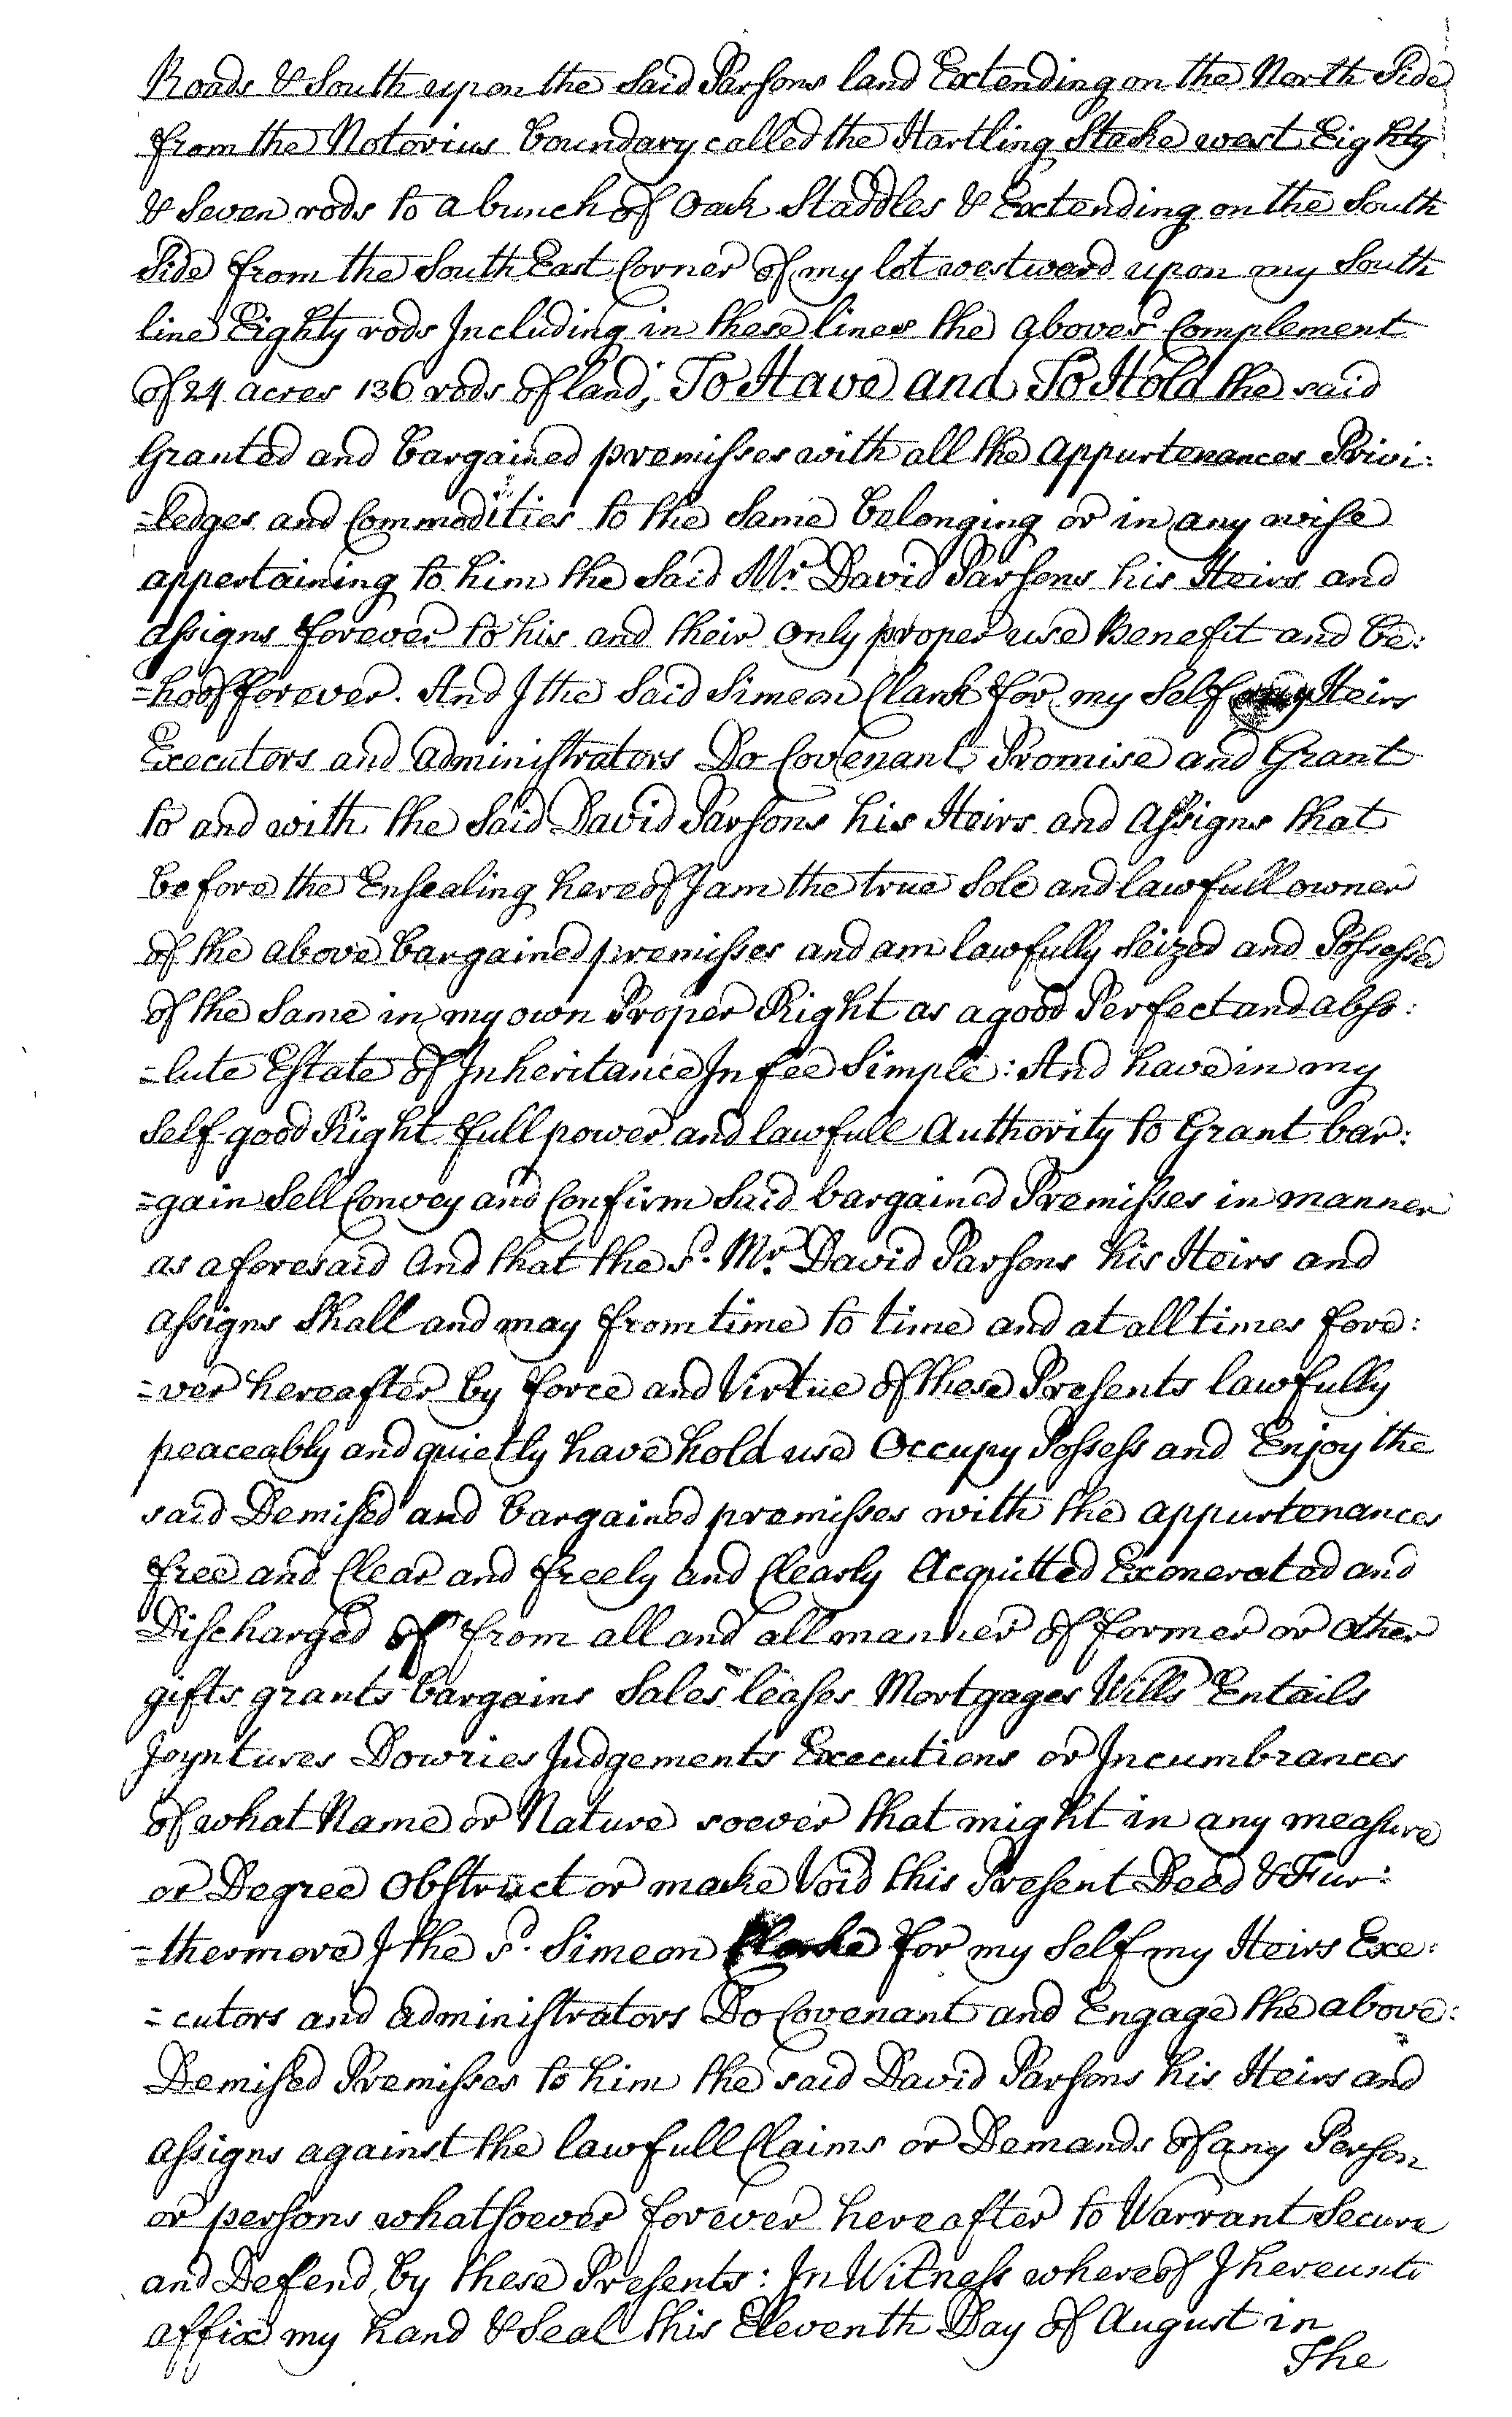 Roads & South upon the Said Parsons land Extending on the North Side
from the Notorius boundary called the Startling Stake west Eighty
& Seven rods to a bunch of Oak Staddles & Extending on the South
Side from the South East Corner of my lot westward upon my South
line Eighty rods Including in these lines the aboves.d Complement
of 24 acres 136 rods of land; To Have and To Hold the said
Granted and bargained premisses with all the appurtenances Privi:
=ledges and Commodities to the Same belonging or in any wise
appertaining to him the Said Mr. David Parsons his Heirs and
assigns forever to his and their only proper use Benefit and be:
=hoof forever. And I the Said Simeon Clark for my Self my Heirs
Executors and administrators Do Covenant Promise and Grant
to and with the Said David Parsons his Heirs and Assigns that
before the Ensealing hereof I am the true Sole and lawfull owner
of the above bargained premisses and am lawfully Seized and Possessed
of the Same in my own Proper Right as a good Perfect and abso:
=lute Estate of Inheritance In fee Simple: And have in my
Self good Right full power and lawfull Authority to Grant bar:
=gain Sell Convey and Confirm Said bargained Premisses in manner
as aforesaid And that the s.d Mr. David Parsons his Heirs and
assigns Shall and may from time to time and at all times fore:
=ver hereafter by force and Virtue of these Presents lawfully
peaceably and quietly have hold use Occupy Possess and Enjoy the
said Demised and bargained premisses with the appurtenances
free and Clear and freely and Clearly Acquitted Exonerated and
Discharged of from all and all manner of former or other
gifts grants bargains Sales leases Mortgages Wills Entails
Joyntures Dowries Judgements Executions or Incumbrances
of what Name or Nature soever that might in any measure
or Degree Obstruct or make Void this Present Deed & Fur:
=thermore I the s.d Simeon Clarke for my Self my Heirs Exe:
=cutors and administrators Do Covenant and Engage the above:
Demised Premisses to him the said David Parsons his Heirs and
assigns against the lawfull Claims or Demands of any Person
or persons whatsoever forever hereafter to Warrant Secure
and Defend by these Presents: In Witness whereof I hereunto
affix my hand & Seal this Eleventh Day of August in
The